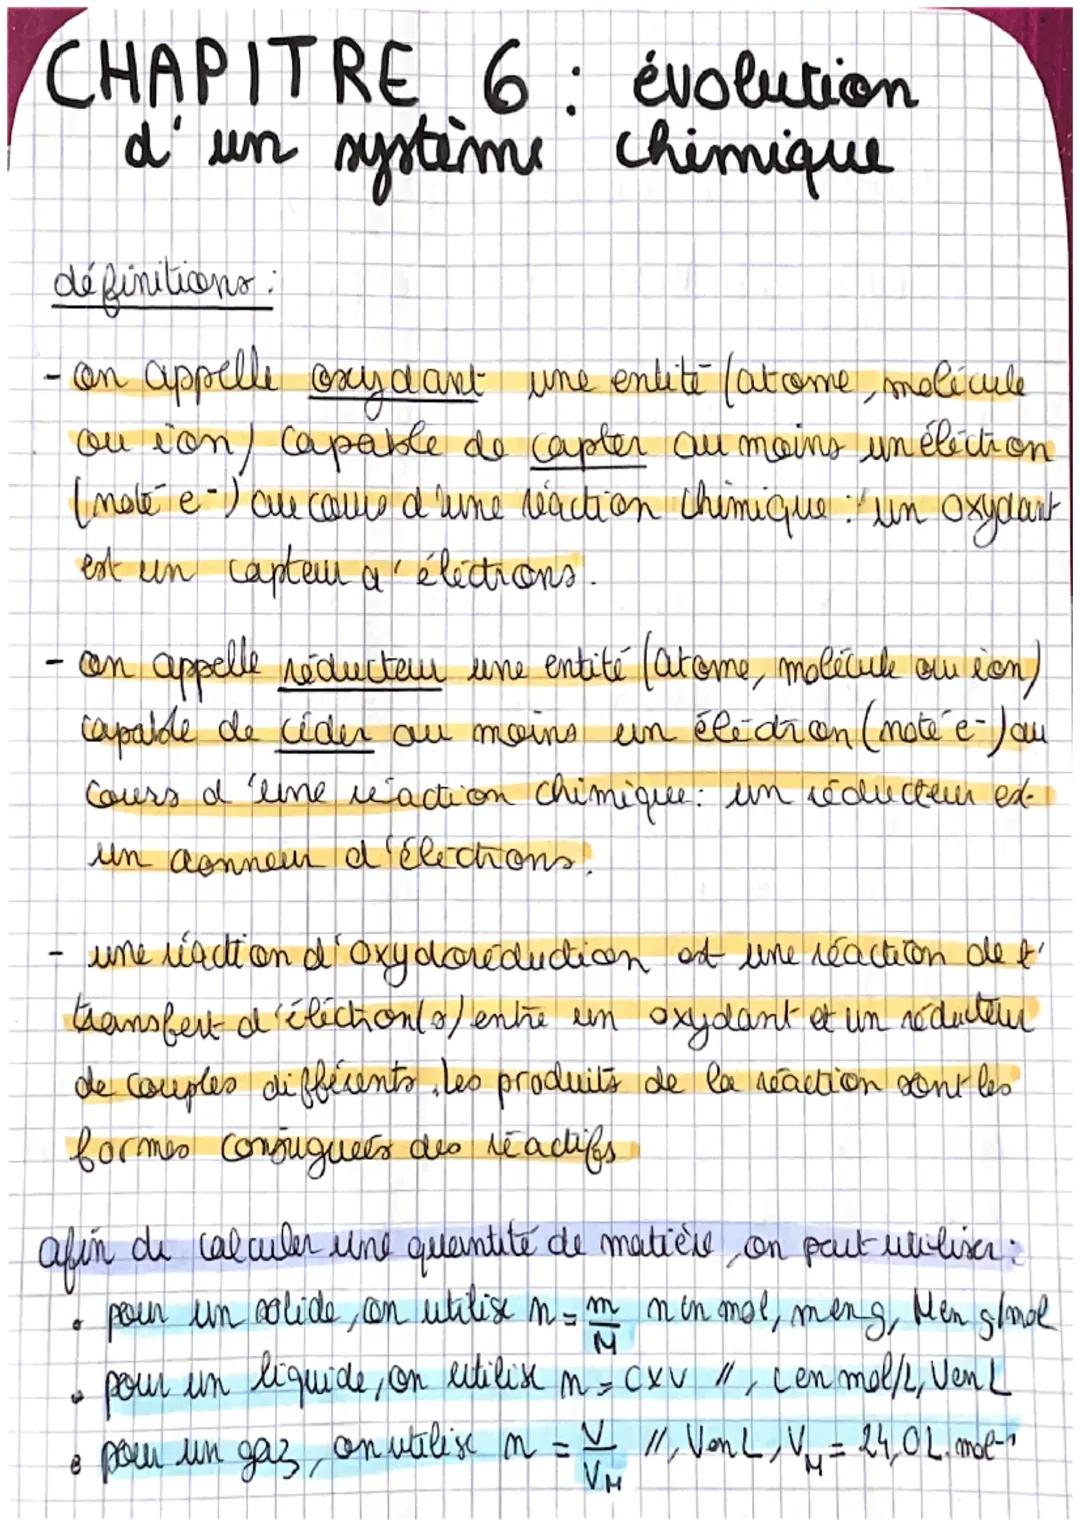 CHAPITRE 6 : évolution
d'un système chimique
définitions :
- on appelle oxydant une entité (atome, molécule
ou ion) capable de capter au moins un électron
(noté e-) au cours d'une réaction chimique : un oxydant
est un capteur d'électrons.
- on appelle réducteur une entité (atome, molécule ou ion)
capable de céder au moins un électron (noté e-) au
cours d'une réaction chimique : un réducteur est
un donneur d'électrons.
- une réaction d'oxydoréduction est une réaction de t'
transfert d'électron(s) entre un oxydant et un réducteur
de couples différents. Les produits de la réaction sont les
formes conjuguées des réactifs
afin de calculer une quantité de matière, on peut utiliser :
• pour un solide, on utilise n = m/M n en mol, m en g, M en g/mol
• pour un liquide, on utilise n = C×V //, C en mol/L, V en L
• pour un gaz, on utilise n = V/VM //, V en L, VM = 24,0 L.mol-1